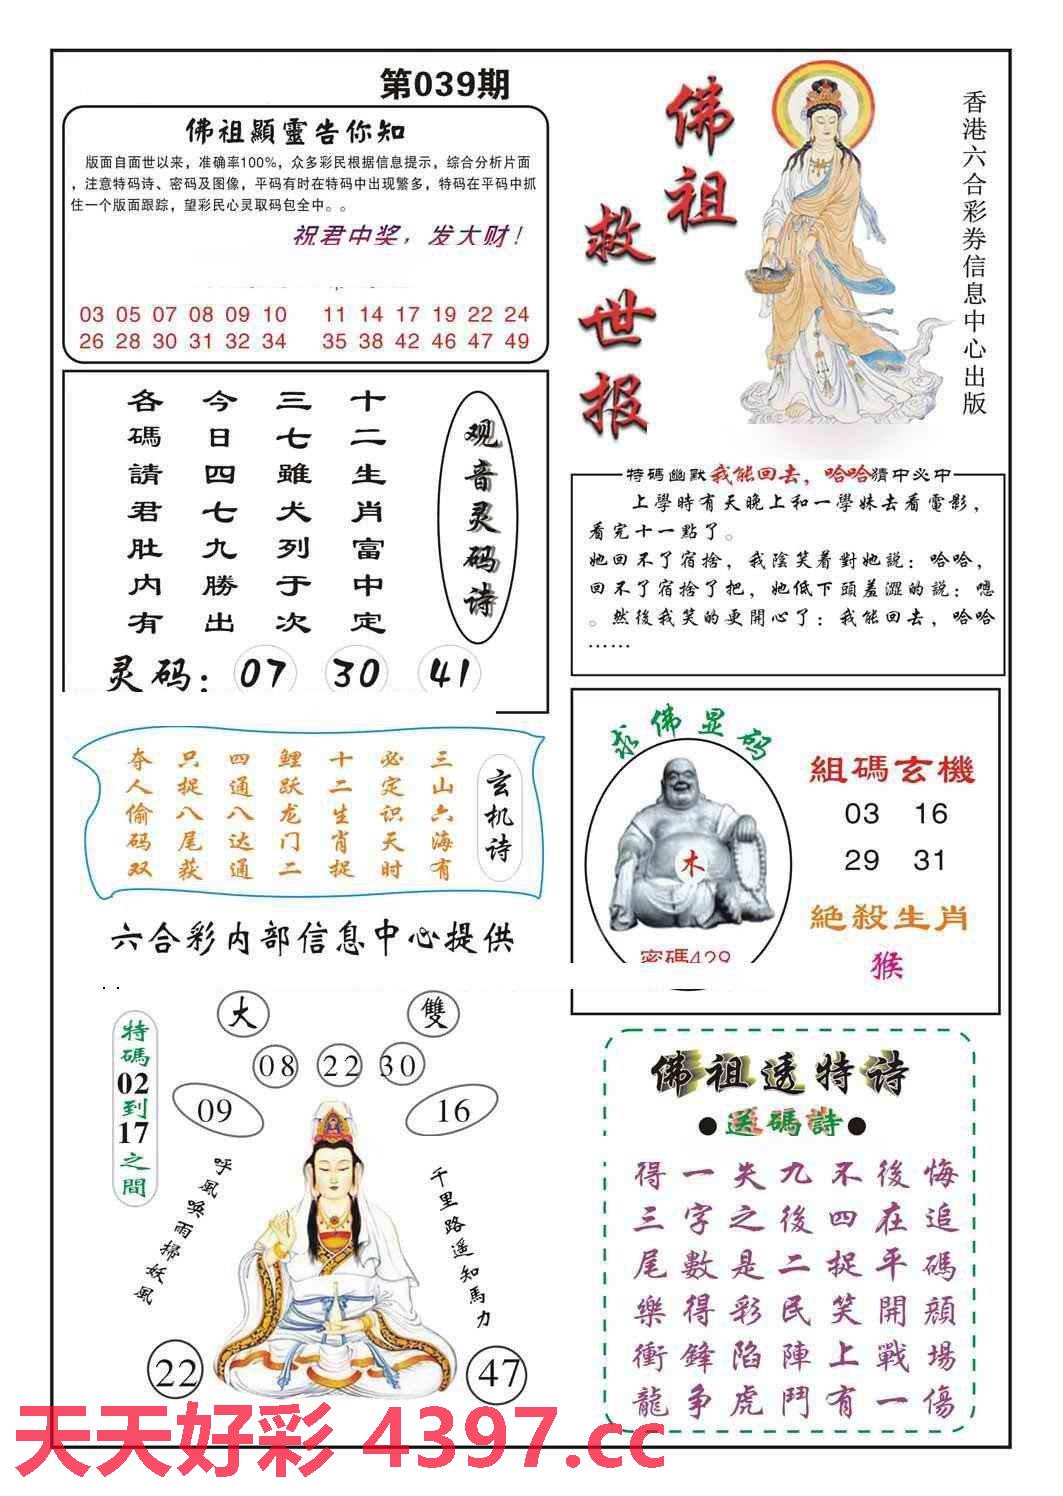 第039期
佛祖顯靈告你知
版面自面世以来，准确率100%，众多彩民根据信息提示，综合分析片面
，注意特码诗、密码及图像，平码有时在特码中出现繁多，特码在平码中抓
住一个版面跟踪，望彩民心灵取码包全中。。
祝君中奖，发大财！
03 05 07 08 09 10 11 14 17 19 22 24
26 28 30 31 32 34 35 38 42 46 47 49
佛祖
救世报
香港六合彩券信息中心出版
观音灵码诗
十二生肖富中定
三七雖犬列于次
今日四七九勝出
各碼請君肚内有
灵码：07 30 41
特碼幽默我能回去，哈哈猜中必中
上學時有天晚上和一學妹去看電影，
看完十一點了。
她回不了宿捨，我陰笑着對她説：哈哈，
回不了宿捨了把，她低下頭羞澀的説：嗯
。然後我笑的更開心了：我能回去，哈哈
……
玄机诗
三山六海有
必定识天时
十二生肖捉
鲤跃龙门二
四通八达通
只捉八尾获
夺人偷码双
六合彩内部信息中心提供
求佛显码
木
密碼429
組碼玄機
03 16
29 31
絶殺生肖
猴
大 雙
08 22 30
09 16
特碼02到17之間
呼風唤雨掃妖風
千里路遥知馬力
22 47
佛祖透特诗
●送碼詩●
得一失九不後悔
三字之後四在追
尾數是二捉平碼
樂得彩民笑開顔
衝鋒陷陣上戰場
龍争虎鬥有一傷
天天好彩 4397.cc